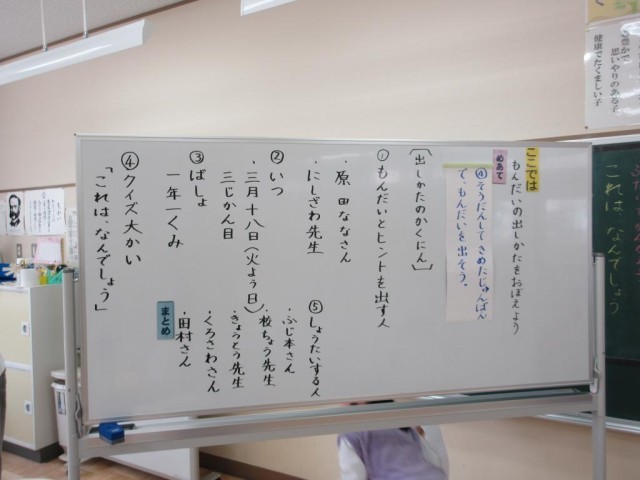 ここでは
もんだいの出しかたをおぼえよう
めあて
④そうだんしてきめたじゅんばん
で、もんだいを出そう。
〔出しかたのかくにん〕
①もんだいとヒントを出す人
・原田ななさん
・にしざわ先生
②いつ
・三月十八日（火よう日）
三じかん目
③ばしょ
一年一くみ
④クイズ大かい
「これは、なんでしょう」
⑤しょうたいする人
・ふじ本さん
・校ちょう先生
・きょうとう先生
・くろさわさん
・田村さん
まとめ
思いやりのある子
健康でたくましい子
これは、なんでしょう